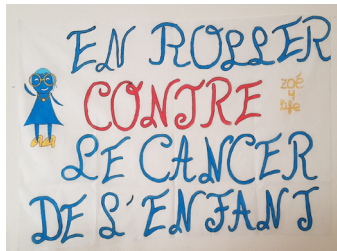 EN ROLLER
CONTRE
zoé
4
life
LE CANCER
DE L'ENFANT